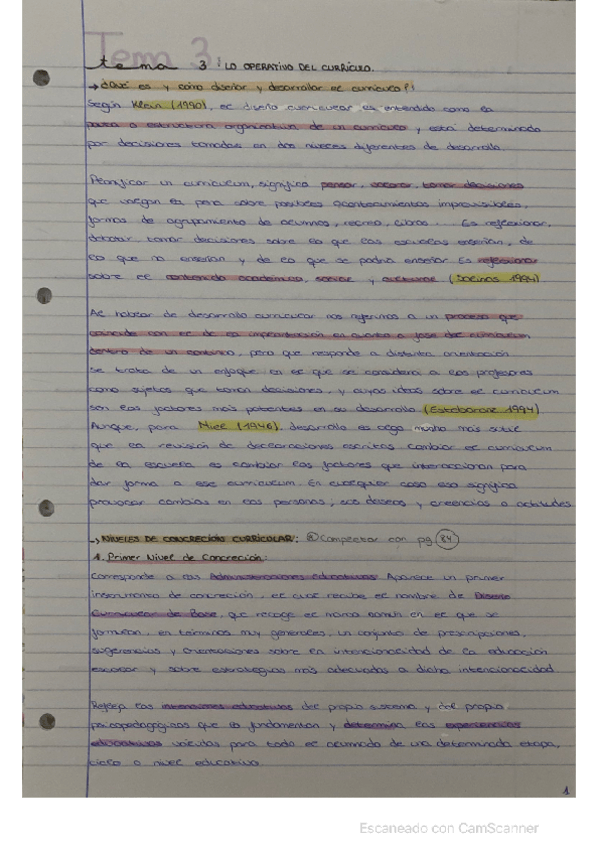 Tema 3
tema 3: LO OPERATIVO DEL CURRÍCULO.
→ ¿Qué es y cómo diseñar y desarrollar el currículo?:
Según Klein (1990), el diseño curricular es entendido como la
pauta o estructura organizativa de un currículo y está determinado
por decisiones tomadas en dos niveles diferentes de desarrollo.
Planificar un currículum, significa pensar, valorar, tomar decisiones
que valgan la pena sobre posibles acontecimientos imprevisibles,
formas de agrupamiento de alumnos, recreo, libros... Es reflexionar,
debatir, tomar decisiones sobre lo que las escuelas enseñan, de
lo que no enseñan y de lo que se podría enseñar. Es reflexionar
sobre el contenido académico, social y cultural (Salinas 1994)
Al hablar de desarrollo curricular nos referimos a un proceso que
coincide con el de la implantación en cuanto a fase del currículum
dentro de un continuo, pero que responde a distinta orientación
Se trata de un enfoque en el que se considera a los profesores
como sujetos que toman decisiones, y cuyas ideas sobre el currículum
son los factores más potentes en su desarrollo (Estebaranz 1994).
Aunque, para Miel (1946), desarrollo es algo mucho más sutil
que la revisión de declaraciones escritas cambiar el currículum
de la escuela es cambiar los factores que interaccionan para
dar forma a ese currículum. En cualquier caso eso significa
provocar cambios en las personas, sus deseos y creencias o actitudes
→ NIVELES DE CONCRECIÓN CURRICULAR: Completar con pg 84
1. Primer Nivel de Concreción:
Corresponde a las Administraciones educativas. Aparece un primer
instrumento de concreción, el cual recibe el nombre de Diseño
Curricular de Base, que recoge el marco común en el que se
formulan, en términos muy generales, un conjunto de prescripciones,
sugerencias y orientaciones sobre la intencionalidad de la educación
escolar y sobre estrategias más adecuadas a dicha intencionalidad
Refleja las intenciones educativas del propio sistema y del propio
psicopedagógicas que lo fundamentan y determina las experiencias
educativas válidas para todo el alumnado de una determinada etapa,
ciclo o nivel educativo.
1
Escaneado con CamScanner